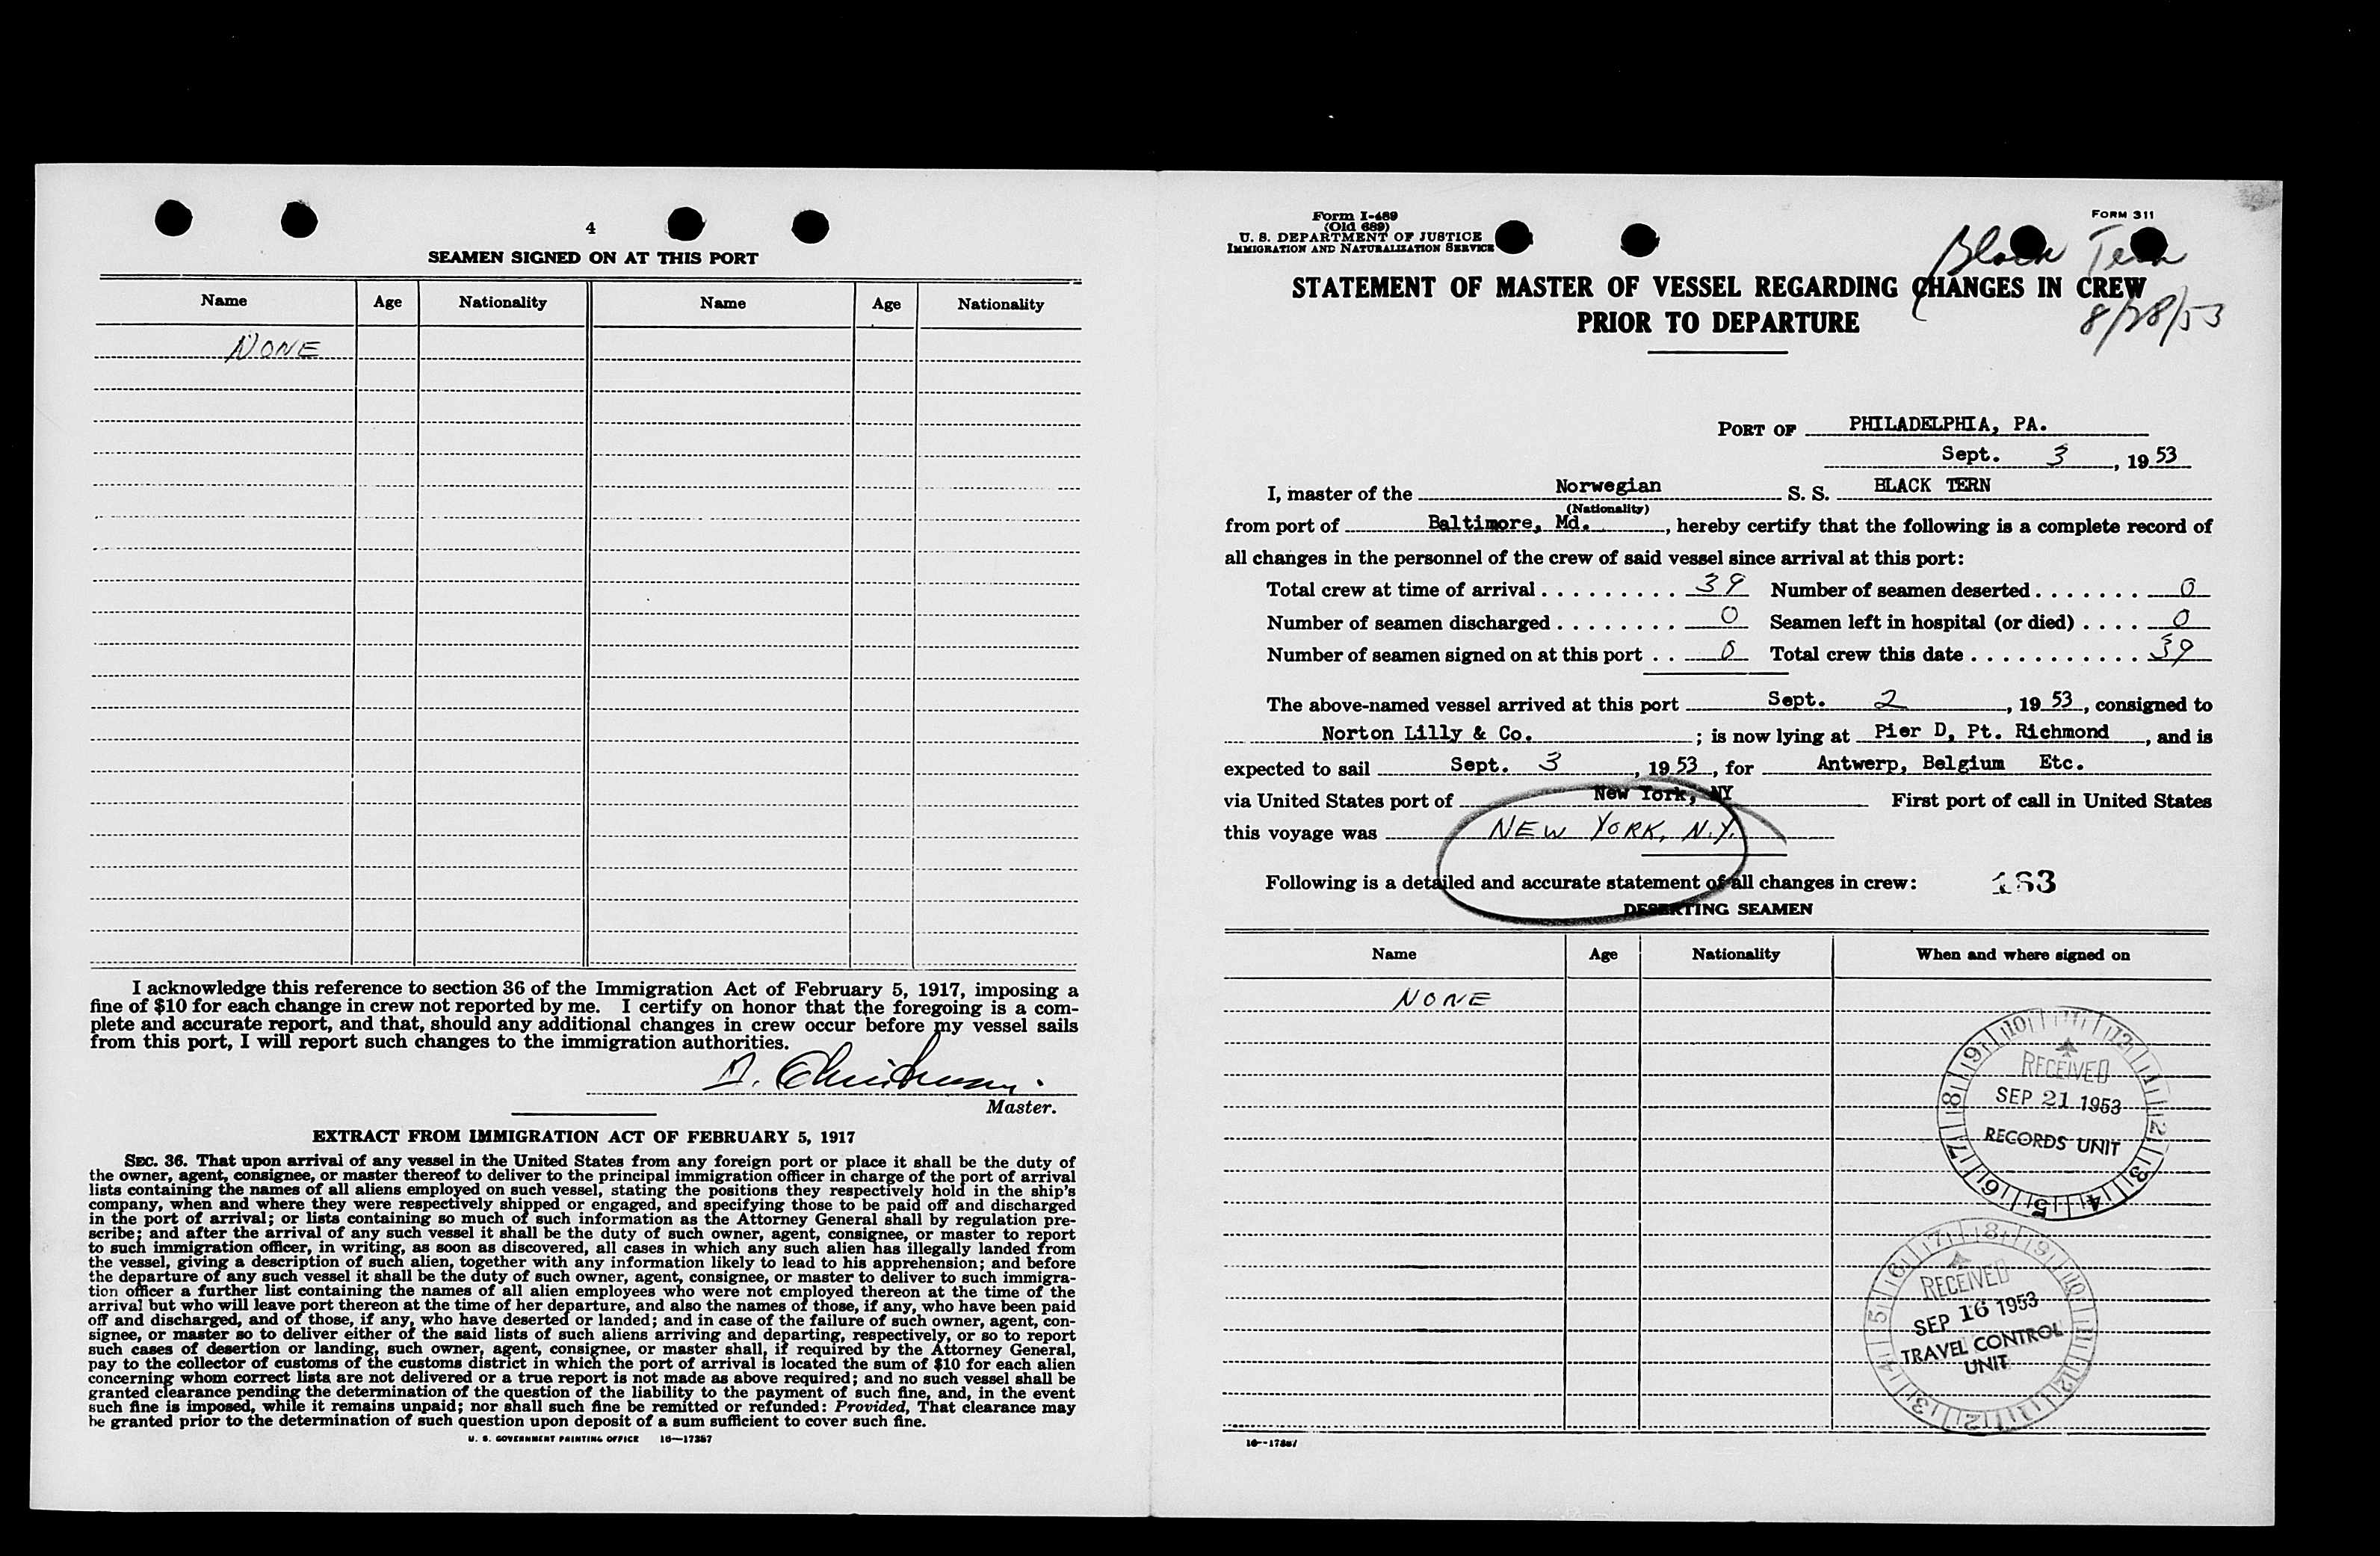 4
SEAMEN SIGNED ON AT THIS PORT
Name Age Nationality Name Age Nationality
NONE
I acknowledge this reference to section 36 of the Immigration Act of February 5, 1917, imposing a
fine of $10 for each change in crew not reported by me. I certify on honor that the foregoing is a com-
plete and accurate report, and that, should any additional changes in crew occur before my vessel sails
from this port, I will report such changes to the immigration authorities.
Master.
EXTRACT FROM IMMIGRATION ACT OF FEBRUARY 5, 1917
SEC. 36. That upon arrival of any vessel in the United States from any foreign port or place it shall be the duty of
the owner, agent, consignee, or master thereof to deliver to the principal immigration officer in charge of the port of arrival
lists containing the names of all aliens employed on such vessel, stating the positions they respectively hold in the ship's
company, when and where they were respectively shipped or engaged, and specifying those to be paid off and discharged
in the port of arrival; or lists containing so much of such information as the Attorney General shall by regulation pre-
scribe; and after the arrival of any such vessel it shall be the duty of such owner, agent, consignee, or master to report
to such immigration officer, in writing, as soon as discovered, all cases in which any such alien has illegally landed from
the vessel, giving a description of such alien, together with any information likely to lead to his apprehension; and before
the departure of any such vessel it shall be the duty of such owner, agent, consignee, or master to deliver to such immigra-
tion officer a further list containing the names of all alien employees who were not employed thereon at the time of the
arrival but who will leave port thereon at the time of her departure, and also the names of those, if any, who have been paid
off and discharged, and of those, if any, who have deserted or landed; and in case of the failure of such owner, agent, con-
signee, or master so to deliver either of the said lists of such aliens arriving and departing, respectively, or so to report
such cases of desertion or landing, such owner, agent, consignee, or master shall, if required by the Attorney General,
pay to the collector of customs of the customs district in which the port of arrival is located the sum of $10 for each alien
concerning whom correct lists are not delivered or a true report is not made as above required; and no such vessel shall be
granted clearance pending the determination of the question of the liability to the payment of such fine, and, in the event
such fine is imposed, while it remains unpaid; nor shall such fine be remitted or refunded: Provided, That clearance may
be granted prior to the determination of such question upon deposit of a sum sufficient to cover such fine.
U. S. GOVERNMENT PRINTING OFFICE 16—17357
Form I-489
(Old 689)
U. S. DEPARTMENT OF JUSTICE
IMMIGRATION AND NATURALIZATION SERVICE
FORM 311
Black Tern
8/28/53
STATEMENT OF MASTER OF VESSEL REGARDING CHANGES IN CREW
PRIOR TO DEPARTURE
PORT OF PHILADELPHIA, PA.
Sept. 3, 1953
I, master of the Norwegian S. S. BLACK TERN
(Nationality)
from port of Baltimore, Md., hereby certify that the following is a complete record of
all changes in the personnel of the crew of said vessel since arrival at this port:
Total crew at time of arrival . . . . . . . . . 39 Number of seamen deserted . . . . . . . 0
Number of seamen discharged . . . . . . . . 0 Seamen left in hospital (or died) . . . . 0
Number of seamen signed on at this port . . 0 Total crew this date . . . . . . . . . . . 39
The above-named vessel arrived at this port Sept. 2, 1953, consigned to
Norton Lilly & Co. ; is now lying at Pier D, Pt. Richmond, and is
expected to sail Sept. 3, 1953, for Antwerp, Belgium Etc.
via United States port of New York, NY First port of call in United States
this voyage was NEW YORK, N.Y.
Following is a detailed and accurate statement of all changes in crew: 163
DESERTING SEAMEN
Name Age Nationality When and where signed on
NONE
RECEIVED
SEP 21 1953
RECORDS UNIT
RECEIVED
SEP 16 1953
TRAVEL CONTROL
UNIT